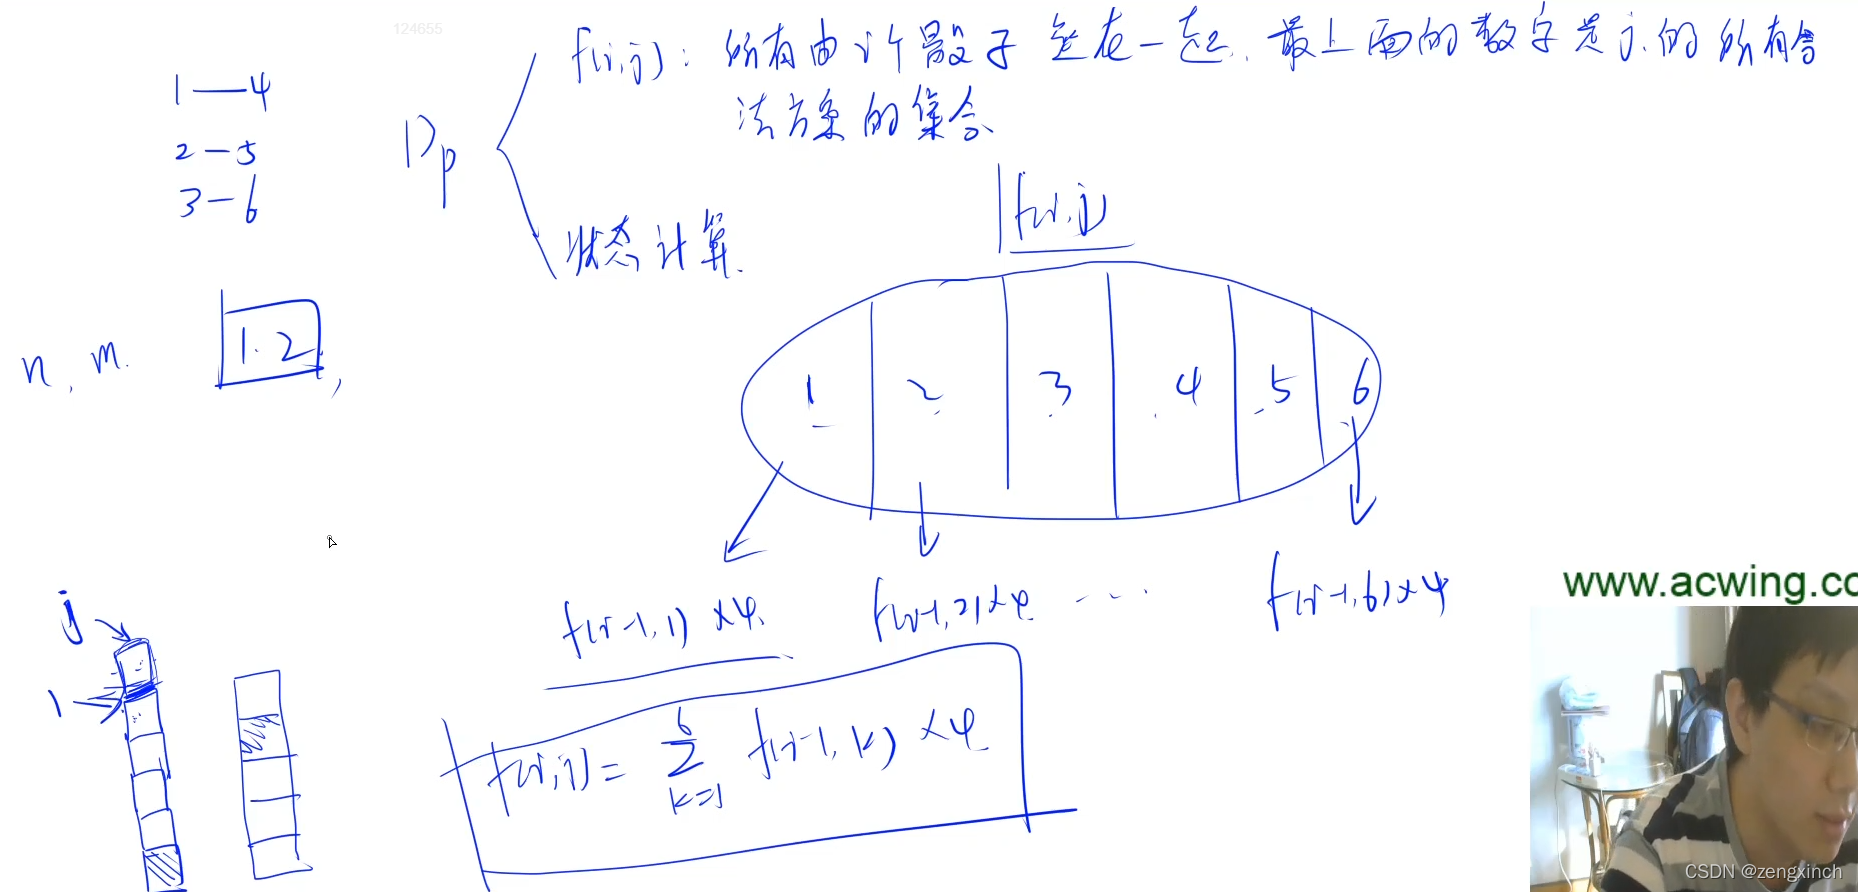 124655
f(i,j): 所有由i个骰子垒在一起, 最上面的数字是j的所有合
法方案的集合
1—4
2—5
3—6
Dp
状态计算.
f(i,j)
n, m.
1.2
,
1
2
3
4
5
6
f(i-1,1)×4
f(i-1,2)×4
...
f(i-1,6)×4
www.acwing.co
j
1
f(i,j)=
6
∑ f(i-1,k)×4
k=1
CSDN @zengxinch